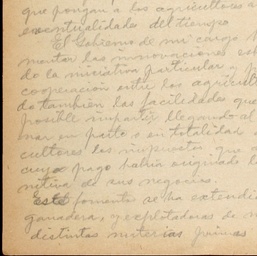 que pongan a los agricultores a
eventualidades del tiempo
El Gobierno de mi cargo
mentar las innovaciones
do la iniciativa particular y
cooperación entre los agricult
do también las facilidades que
posible impartir llegando al
nar en parte o en totalidad
cultores los impuestos que
cuyo pago habia originado l
nitiva de sus negocios.
Este fomento se ha extendi
ganaderas y explotadoras de m
distintas materias primas